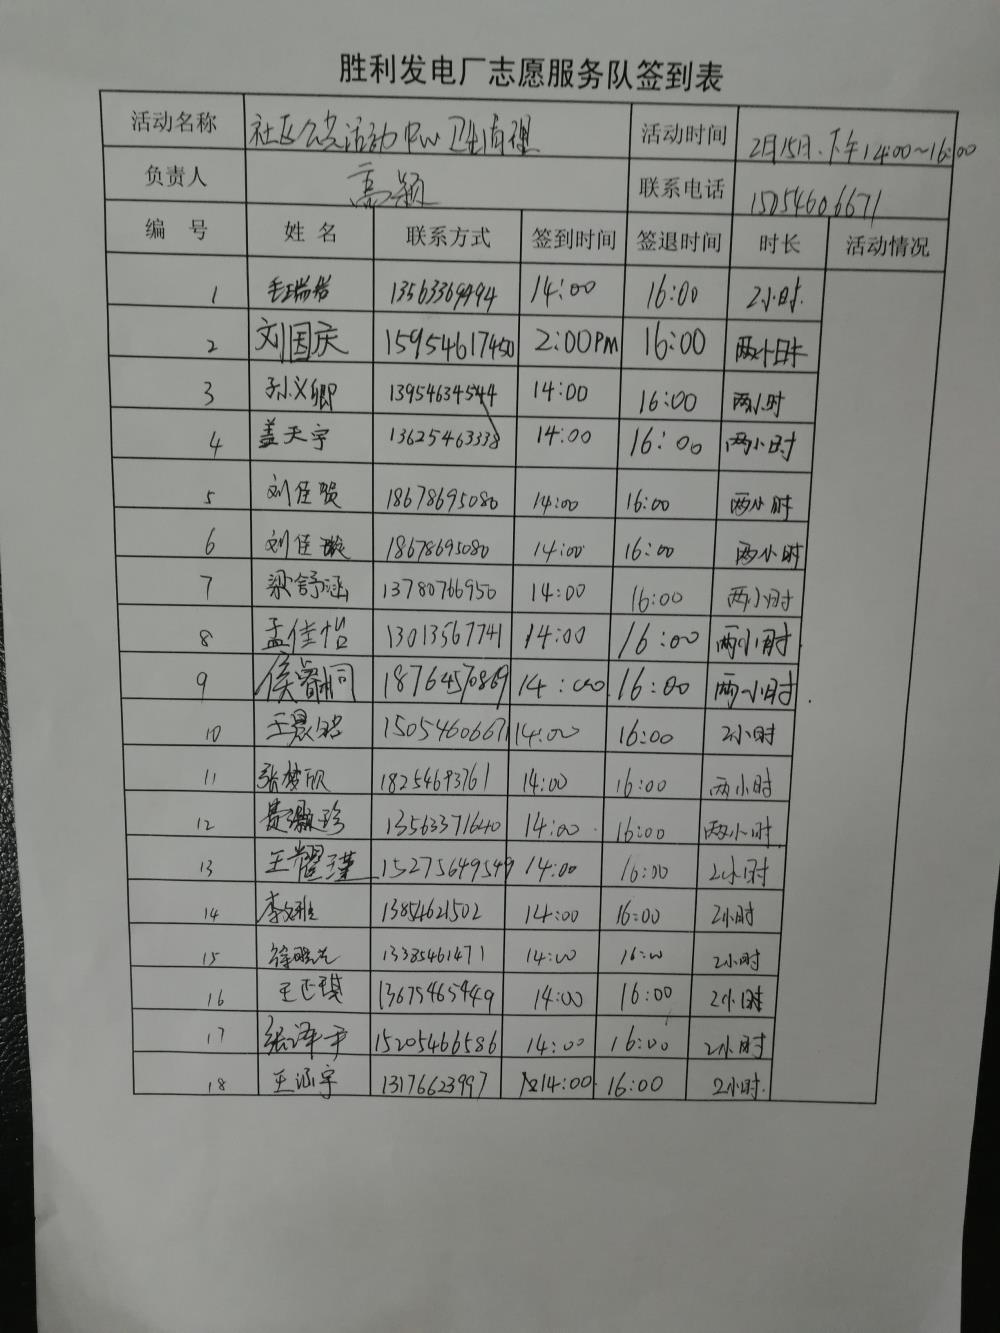 胜利发电厂志愿服务队签到表
活动名称 社区公共活动中心卫生清理 活动时间 2月15日.下午14:00~16:00
负责人 高颖 联系电话 15054606671
编号 姓名 联系方式 签到时间 签退时间 时长 活动情况
1 13563369494 14:00 16:00 2小时.
2 刘国庆 15954617450 2:00PM 16:00 两小时
3 孙义卿 13954634544 14:00 16:00 两小时
4 盖天宇 13625463338 14:00 16:00 两小时
5 刘佳贺 18678695080 14:00 16:00 两小时
6 刘佳璇 18678695080 14:00 16:00 两小时
7 梁舒涵 13780766950 14:00 16:00 两小时
8 孟佳怡 13013567741 14:00 16:00 两小时.
9 侯睿桐 18764570869 14:00 16:00 两小时.
10 15054606671 14:00 16:00 2小时
11 张梦欣 18254693761 14:00 16:00 两小时
12 13563371640 14:00 16:00 两小时
13 王耀瑾 15275649549 14:00 16:00 2小时
14 13854621502 14:00 16:00 2小时
15 13385461471 14:00 16:00 2小时
16 王芷琪 13675465449 14:00 16:00 2小时
17 张泽宇 15205466586 14:00 16:00 2小时
18 王涵宇 13176623997 14:00 16:00 2小时.